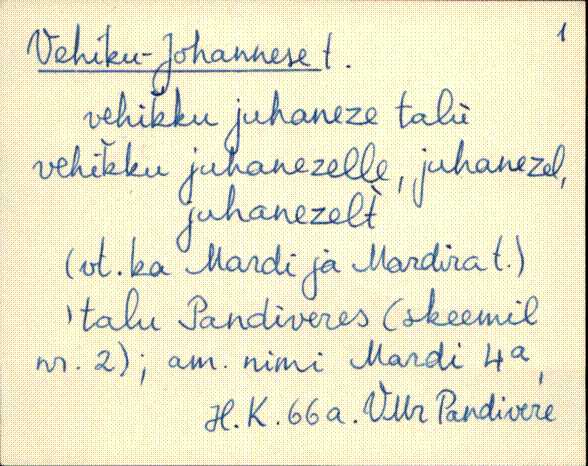 1
Vehiku-Johannese t.
vehikku juhaneze talù
vehikku juhanezelle, juhanezel,
juhanezelt̀
(vt. ka Mardi ja Mardira t.)
'talu Pandiveres (skeemil
nr. 2); am. nimi Mardi 4a,
H.K. 66a. VMr Pandivere